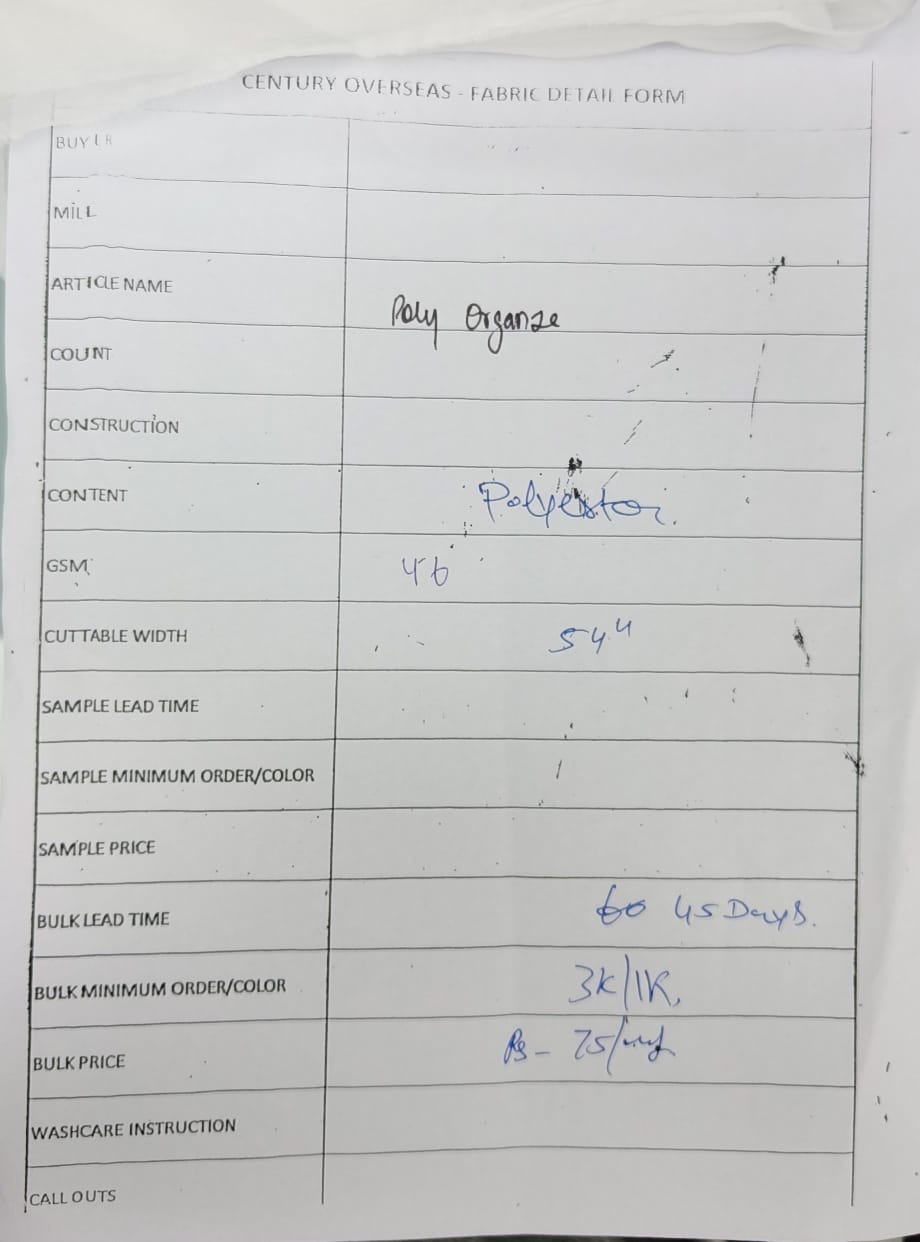 CENTURY OVERSEAS - FABRIC DETAIL FORM
BUYER
MILL
ARTICLE NAME Poly Organze
COUNT
CONSTRUCTION
CONTENT Polyestor.
GSM 46
CUTTABLE WIDTH 54"
SAMPLE LEAD TIME
SAMPLE MINIMUM ORDER/COLOR
SAMPLE PRICE
BULK LEAD TIME 45 Days.
BULK MINIMUM ORDER/COLOR 3K/1K,
BULK PRICE Rs - 75/
WASHCARE INSTRUCTION
CALL OUTS